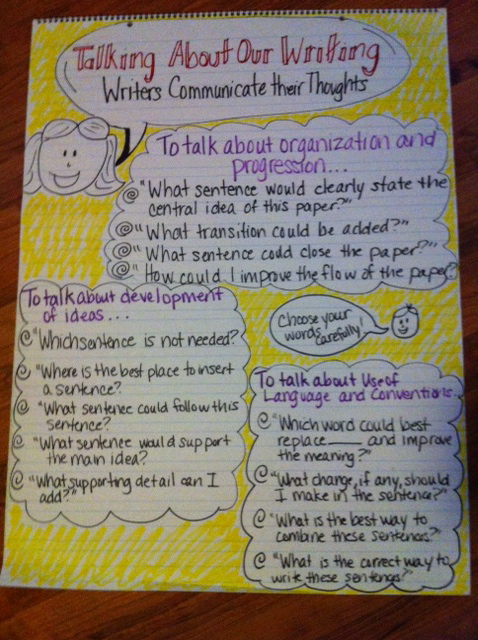 Talking About Our Writing
Writers Communicate their Thoughts
To talk about organization and
progression...
"What sentence would clearly state the
central idea of this paper?"
"What transition could be added?"
"What sentence could close the paper?"
"How could I improve the flow of the paper?
To talk about development
of ideas...
"Which sentence is not needed?
"Where is the best place to insert
a sentence?
"What sentence could follow this
sentence?
"What sentence would support
the main idea?
"What supporting detail can I
add?"
Choose your
words
carefully!
To talk about Use of
Language and Conventions
"Which word could best
replace____ and improve
the meaning?"
"What change, if any, should
I make in the sentence?"
"What is the best way to
combine these sentences?"
"What is the correct way to
write these sentences?"